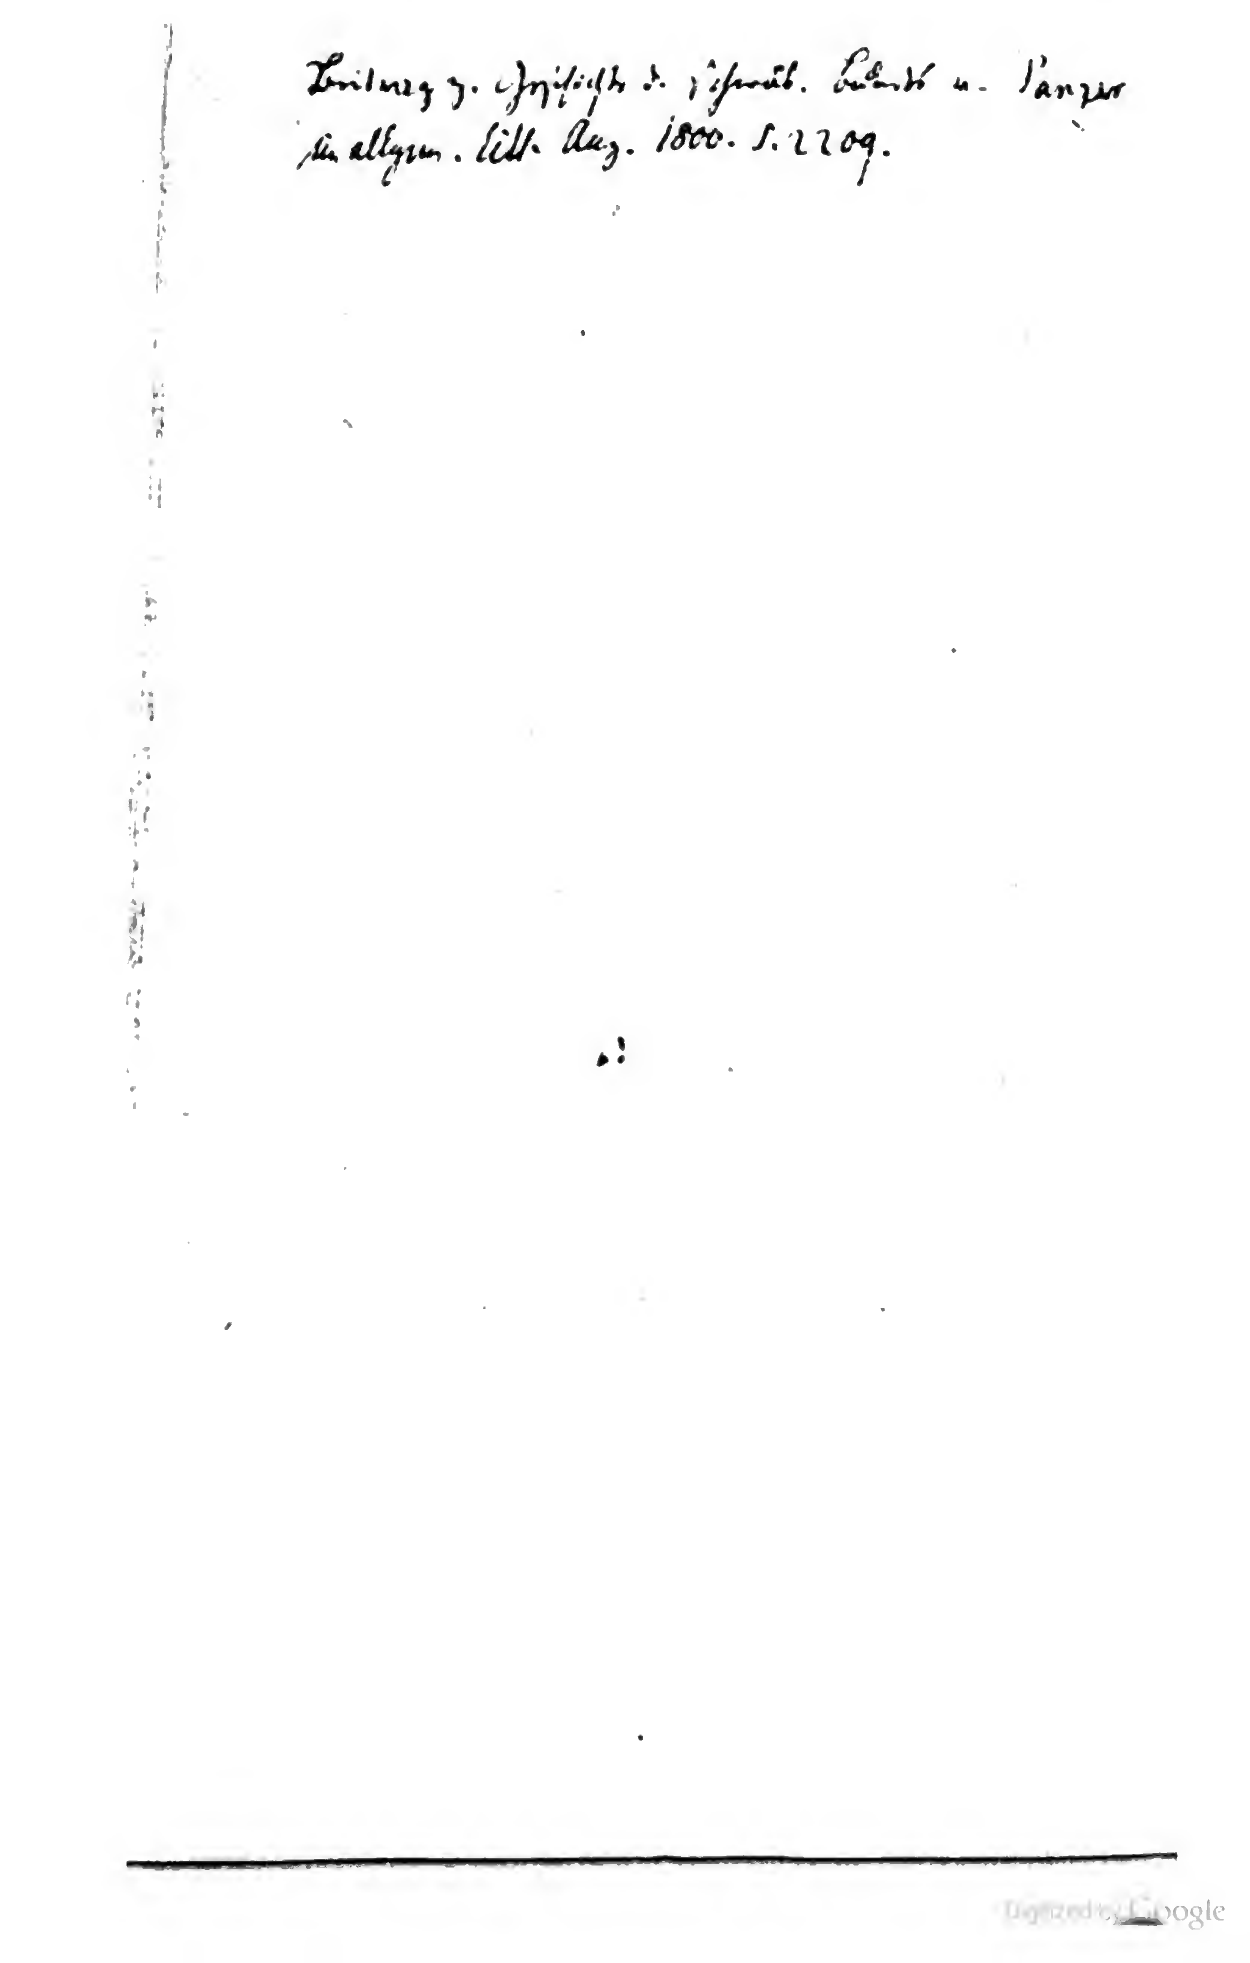 Beitrag z. Geschichte d. schwäb. Bundes v. Panzer
im allgem. litt. Anz. 1800. S. 2209.
Digitized by Google